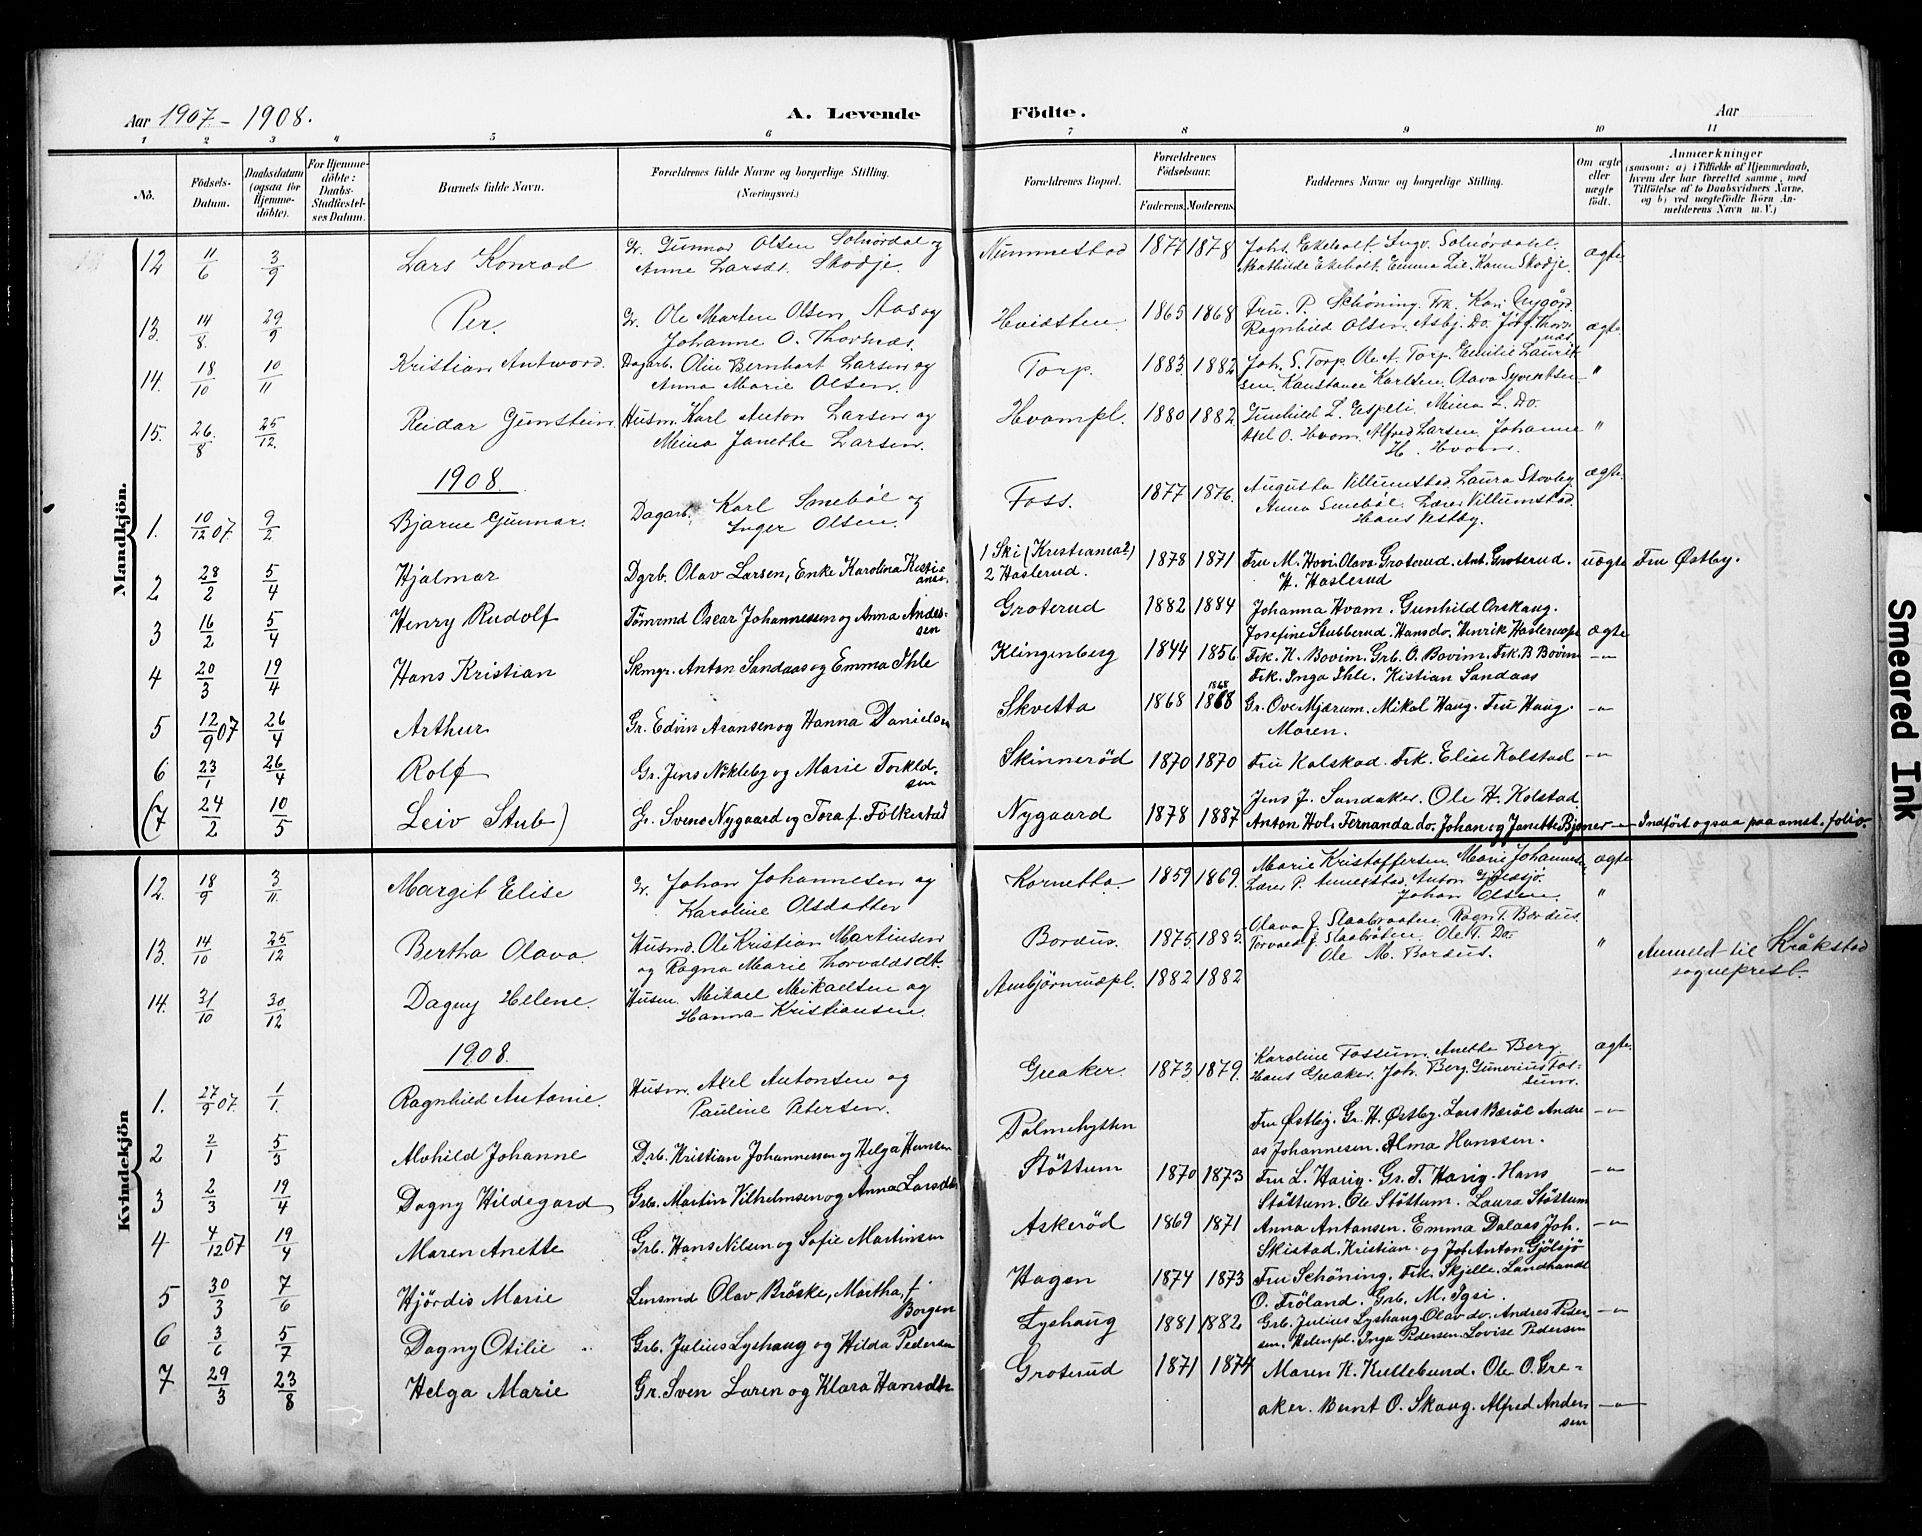 Aar 1907 - 1908.
A. Levende Födte.
Aar
1 2 3 4 5 6 7 8 9 10 11
No.
Födsels-Datum.
Daabsdatum (ogsaa for Hjemmedöbte).
For Hjemmedöbte: Daabs-Stadfæstelses Datum.
Barnets fulde Navn.
Forældrenes fulde Navne og borgerlige Stilling. (Næringsvei.)
Forældrenes Bopæl.
Forældrenes Födselsaar.
Faderens. Moderens.
Faddernes Navne og borgerlige Stilling.
Om ægte eller uægte födt.
Anmærkninger
(saasom: a) i Tilfælde af Hjemmedaab, hvem der har forrettet samme, med Tilföielse af to Daabsvidners Navne, og b) ved uægtefödte Börn Anmelderens Navn m. V.)
Mandkjön.
12 11/6 3/9 Lars Konrad Gr. Gunnar Olsen Solnördal og Nummestad 1877 1878 Joh. Ekeholt. Ingv. Solnördahl. ægte
Anne Larsdt. Skodje. Mathilde Ekeholt. Emma Lie. Karen Skodje.
13. 14/8. 29/9 Per. Gr. Ole Marten Olsen Aas og Hvidsten 1865 1868 Fru P. Schöning. Frk. Kari Nygård. ægte
Johanne O. Thornæs. Ragnhild Olsen. Asbj. Do. Josf. Thornæs
14. 18/10 10/11 Kristian Antward. Dagarb. Olin Bernhart Larsen og Torp. 1883 1882 Joh. S. Torp. Ole A. Torp. Emilie Laurit- "
Anna Marie Olsen. sen. Konstance Karlsen. Olava Syvertsen
15. 26./8 25/12. Reidar Gunstein Husm. Karl Anton Larsen og Hvampl. 1880 1882. Gunhild L. Espeli. Mina L. Do. "
Mina Janette Larsen. Axel O. Hvam. Alfred Larsen. Johanne
H. Hvam.
1908.
1. 10/12 07 9/2 Bjarne Gunnar. Dagarb. Karl Smeböl og Foss. 1877 1876. Augusta Villumstad. Laura Stovby ægte.
Inger Olsen. Anna Smeböl. Lærer Villumstad.
Hans Vestby.
2 28/2 5/4 Hjalmar Dgrb. Olav Larsen, Enke Karolina Kristi- 1 Ski (Kristiania?) 1878 1871 Fru M. Hovi. Olava Groterud. Ant. Groterud. uægte Fru Østby.
ans. 2 Haslerud. H. Haslerud
3 16/2 5/4 Henry Rudolf Tömmd Oscar Johannessen og Anna Anders- Groterud 1882 1884 Johanna Hvam. Gunhild Orskaug.
sen Josefine Stubberud. Hans do. Henrik Haslerud ægte
4 20/3 19/4 Hans Kristian Skmgr. Anton Sandaas og Emma Ihle Klingenberg 1844 1856 Frk. H. Bovim. Grb. O. Bovim. Frk. B Bovim -"-
Frk. Inga Ihle. Kistian Sandaas
5 12/9 07 26/4 Arthur Gr. Edvin Aronsen og Hanna Danielsen Skvetta 1868 1868 Gr. Ove Mjærum. Mikal Haug. Fru Haug. -"-
1868 Moren.
6 23/1 26/4 Rolf Gr. Jens Nökleby og Marie Torkild- Skinneröd 1870 1870 Fru Kolstad. Frk. Elise Kolstad -"-
sen
(7 24/2 10/5 Leiv Stub) Gr. Svend Nygaard og Tora f. Folkestad Nygaard 1878 1887 Jens J. Sandaker. Ole H. Kolstad
Anton Hol. Fernanda do. Johan og Janette Bjoner -"- Indfört ogsaa paa omst. folio.
Kvindekjön
12. 18/9 3/11. Margit Elise Gr. Johan Johannesen og Kornetta. 1859 1869. Marie Kristoffersen. Marie Johannesen. ægte
Karoline Olsdatter Lærer P. Annexstad. Anton Gjölsjö.
Johan Olsen. "
13. 14/10 25/12 Bertha Olava. Husmd. Ole Kristian Martinsen Bordus. 1875 1885. Olava J. Slaabraaten. Ragn. T. Bordus.
og Ragna Marie Thorvaldsdt. Torvald J. Slaabråten. Ole T. Do. " Anmeldt til Kråkstad
Ole M. Bordus. sogneprest.
14. 31/10 30/12 Dagny Helene. Husm. Mikael Mikaelsen og Arnbjörnrudpl. 1882 1882
Hanna Kristiansen.
1908.
1. 27/9 07. 1/1. Ragnhild Antonie. Husm. Axel Antonsen og Greaker. 1873 1879. Karoline Fossum. Anette Berg. ægte.
Pauline Petersen. Hans Greaker. Joh. Berg. Gunerius Fos-
sum.
2 2/1 5/3 Alvhild Johanne Drb. Kristian Johannessen og Helga Hansen Palmehytten Fru Østby. Gr. H. Østby. Lars Bæröl Andre -"-
as Johannesen. Alma Hanssen.
3 2/3 19/4 Dagny Hildegard Grb. Martin Vilhelmsen og Anna Larsdtr Stöttum 1870 1873 Fru L. Haug. Gr. T. Haug. Hans -"-
Stöttum. Ole Stöttum. Laura Stöttum
4 4/12 07 19/4 Maren Anette Grb. Hans Nilsen og Sofie Martinsen Askeröd 1869 1871 Anna Antonsen. Emma Dalaas Joh. -"-
Skistad. Kristian og Joh. Anton Gjölsjö
5 30/3 7/6 Hjördis Marie Lensmd Olav Bröske, Martha, f. Hagen 1874 1873 Fru Schöning. Frk. Skjelle. Landhandl
Borgen O. Fröland. Grb. M. Igsi.
6 3/6 5/7 Dagny Otilie Grb. Julius Lyshaug og Hilda Pedersen Lyshaug 1881 1882 Grb. Julius Lyshaug Olav do. Andres Peder- -"-
sen, Holenpl. Inga Pedersen. Lovise Pedersen
7 29/3 23/8 Helga Marie Gr. Sven Laren og Klara Hansdtr Groterud 1871 1874 Maren K. Kullebund. Ole O. Gre-
aker. Bernt O. Skaug. Alfred Ander- -"-
sen
Smeared Ink